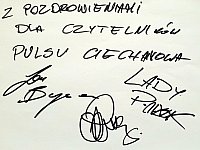 Z POZDROWIENIAMI
DLA CZYTELNIKÓW
PULSU CIECHANOWA
LADY
PANK